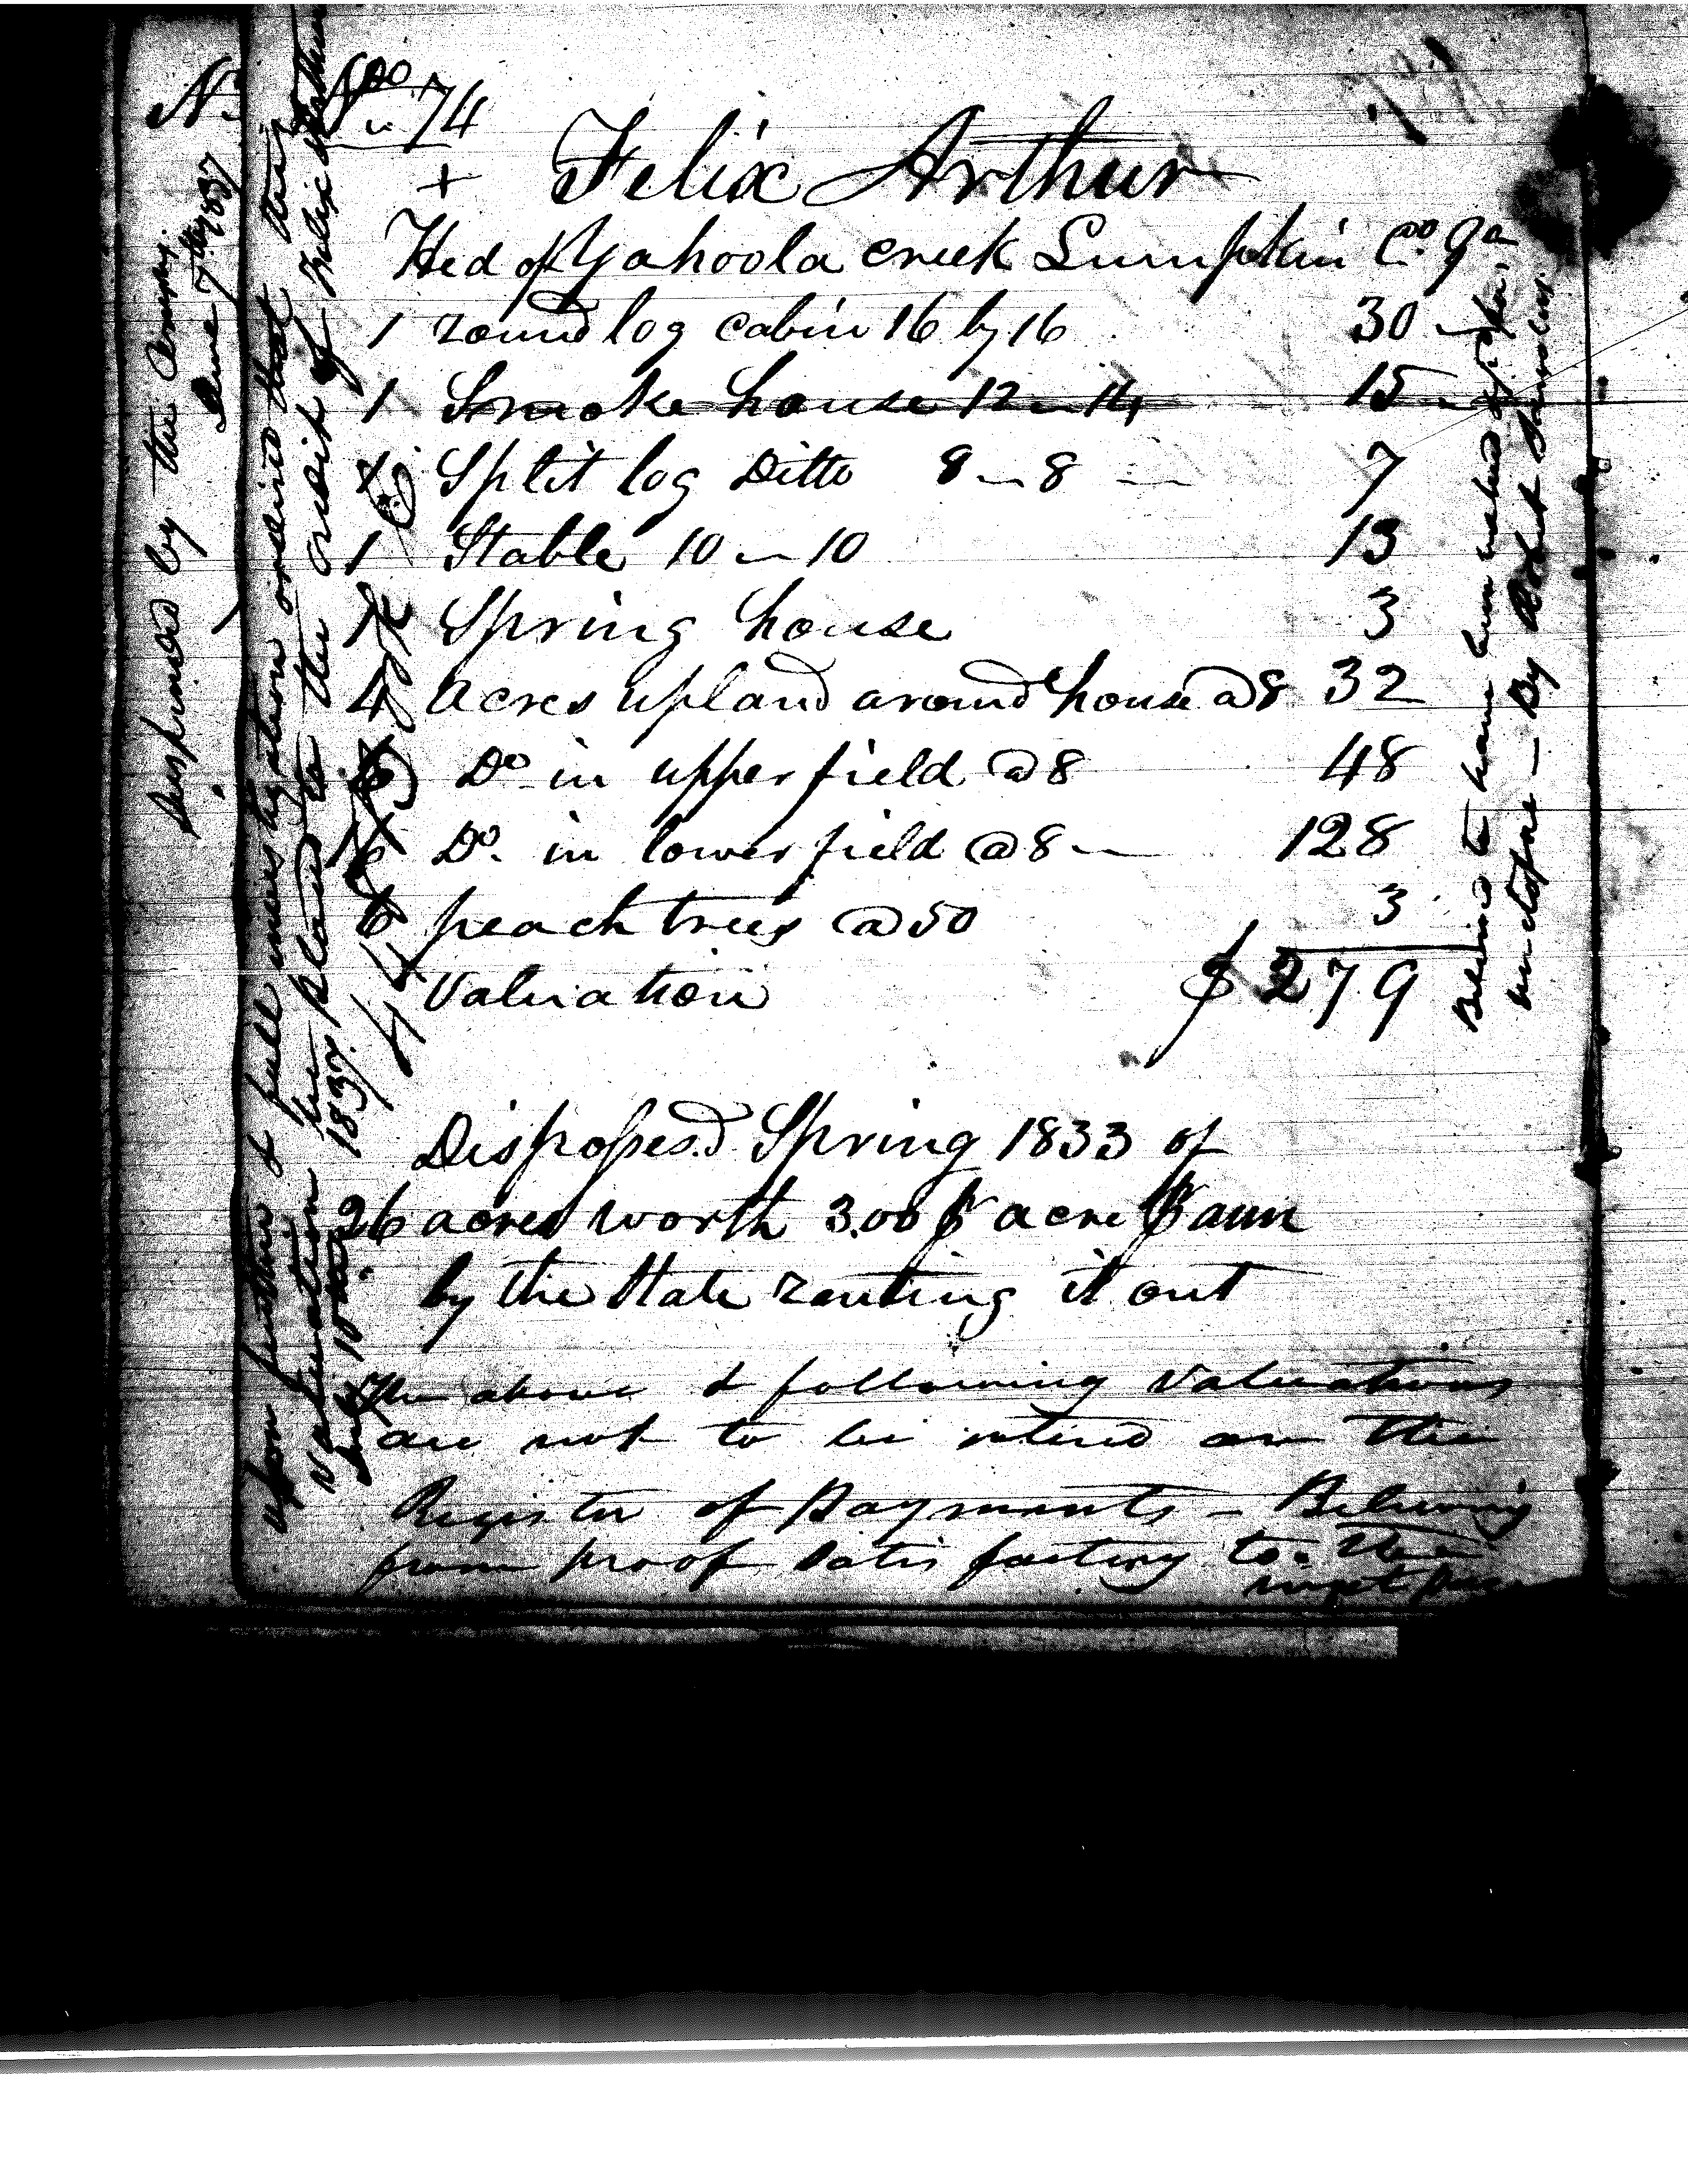 No 74
+ Felix Arthur
Hed of Yahoola creek Lumpkin Co Ga
1 round log cabin 16 by 16 30
1 Smoke house 12 - 14 15
1 Split log Ditto 8 - 8 7
1 Stable 10 - 10 13
1 Spring house 3
4 acres upland around house @ 8 32
6 Do in upper field @ 8 48
16 Do. in lower field @ 8 128
6 peach trees @ 50 3
Valuation $ 279
Dispossesd Spring 1833 of
26 acres worth 3.00 p acre p ann
by the State renting it out
The above & following Valuations
are not to be entered on the
Register of Payments - Believing
from proof satisfactory to the
Suspended by the
June 7th 1837
upon further & full investigation ordered that
Valuation be placed to the credit of Felix Arthur
July 10th 1837
Believed to have been
- By Robert